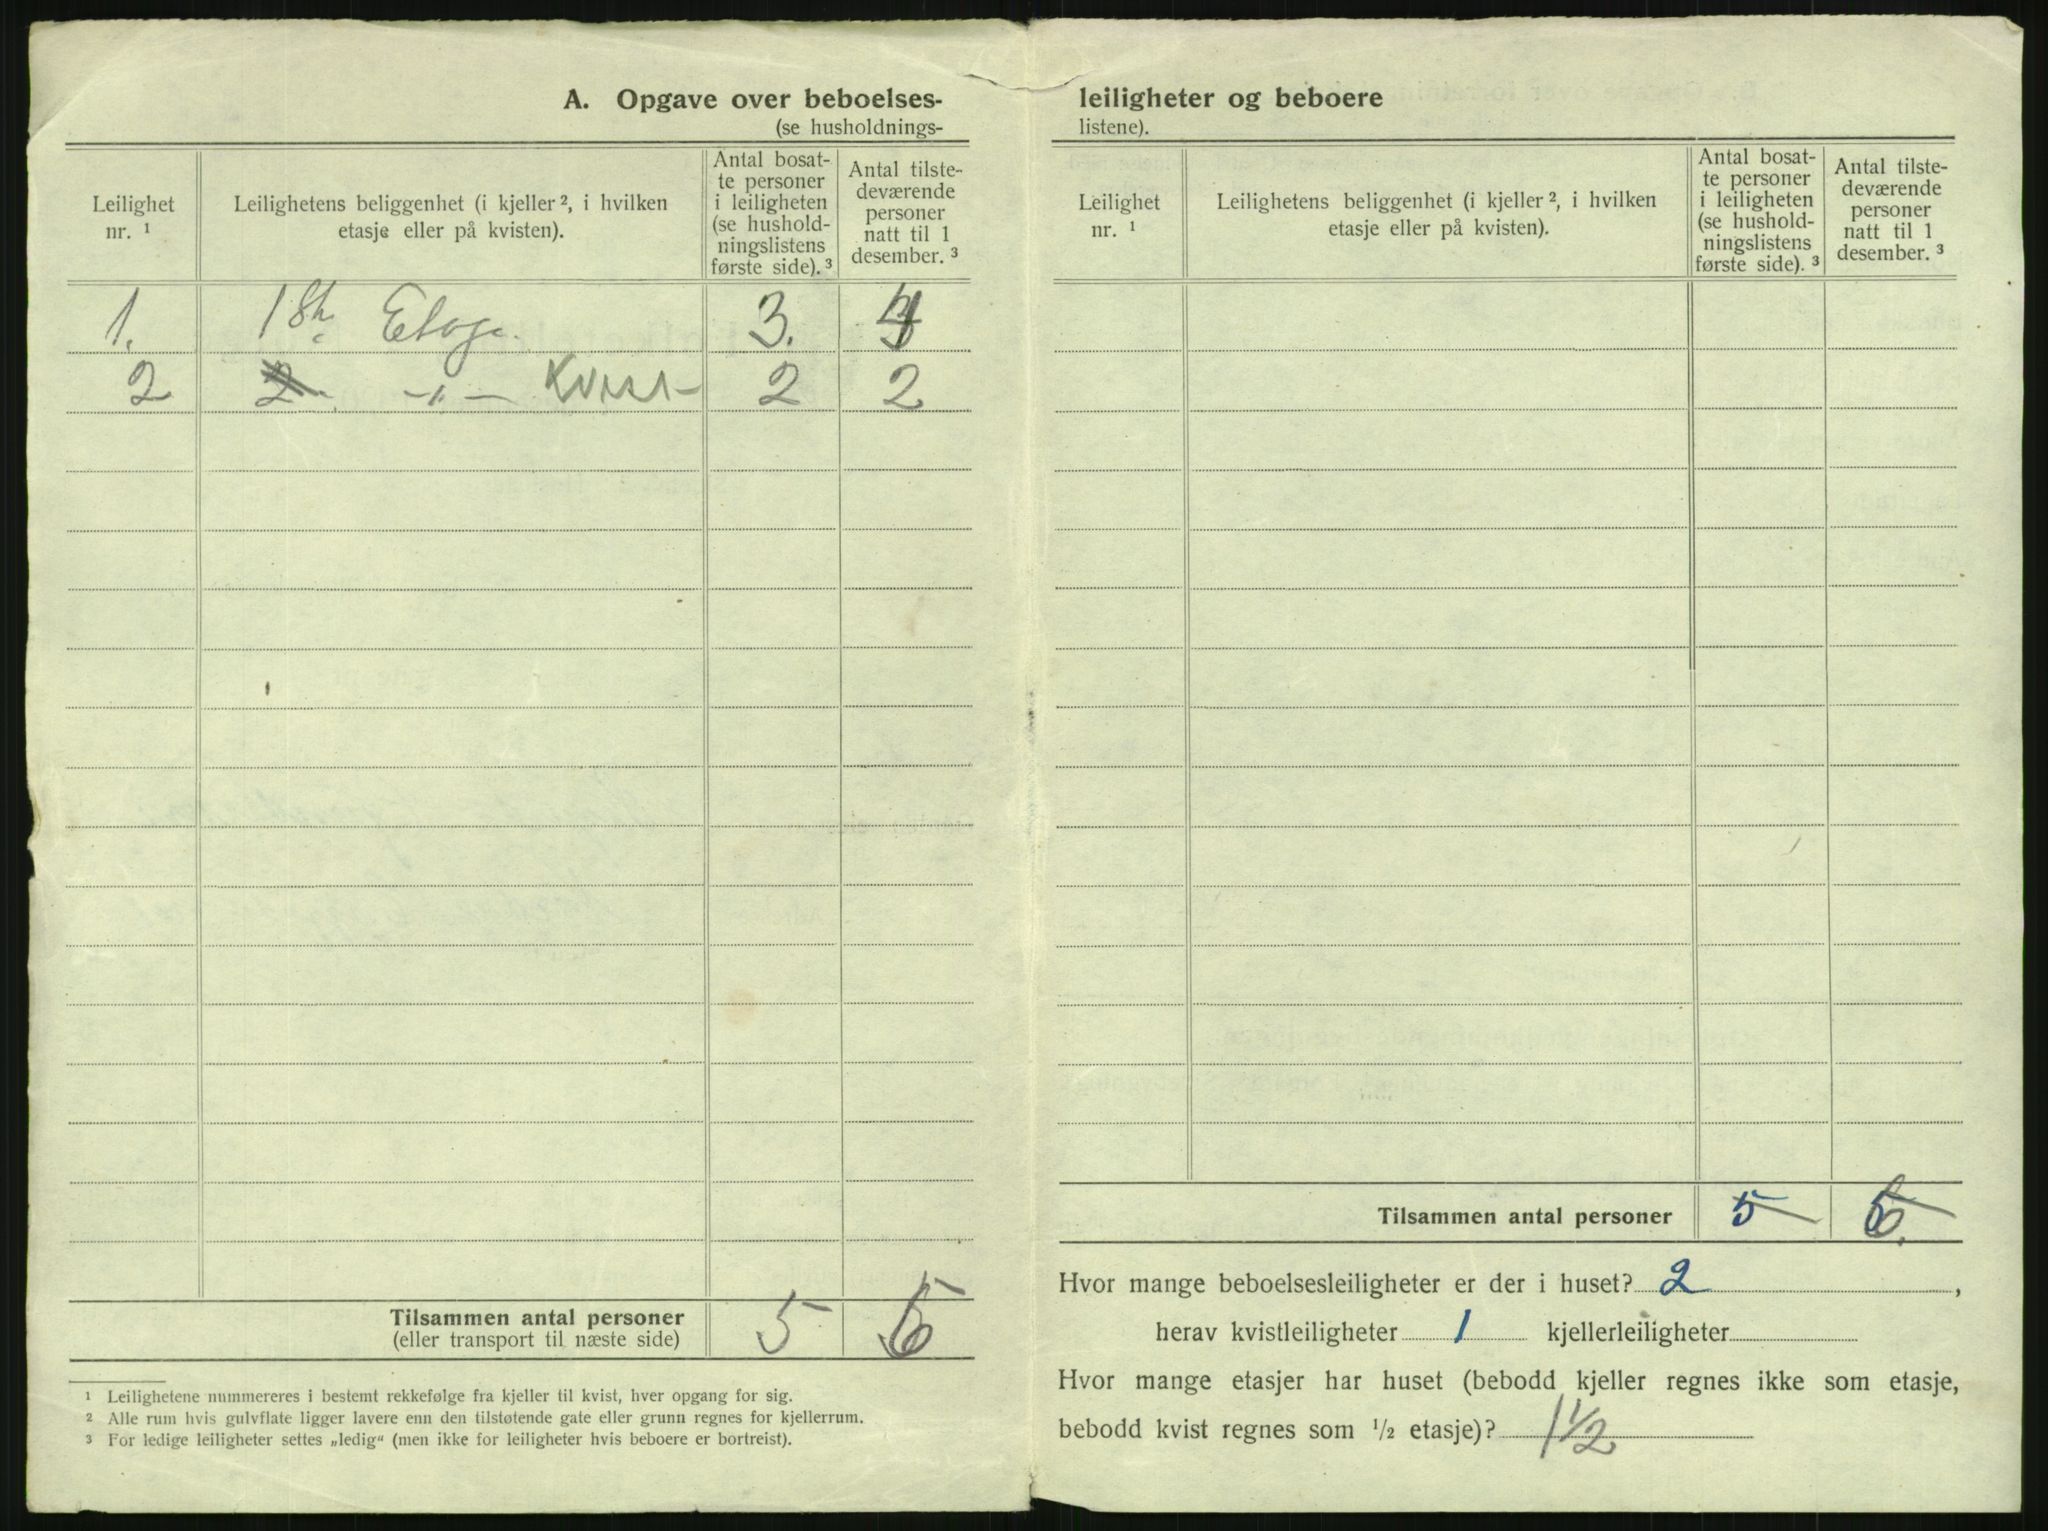 A. Opgave over beboelses-
(se husholdnings-
Leilighet nr. ¹
Leilighetens beliggenhet (i kjeller ², i hvilken etasje eller på kvisten).
Antal bosat-
te personer
i leiligheten
(se hushold-
ningslistens
første side). ³
Antal tilste-
deværende
personer
natt til 1
desember. ³
1. 1ste Etage. 3.
2 2. -"- Kvist 2 2
Tilsammen antal personer 5
(eller transport til næste side)
¹ Leilighetene nummereres i bestemt rekkefølge fra kjeller til kvist, hver opgang for sig.
² Alle rum hvis gulvflate ligger lavere enn den tilstøtende gate eller grunn regnes for kjellerrum.
³ For ledige leiligheter settes „ledig“ (men ikke for leiligheter hvis beboere er bortreist).
leiligheter og beboere
listene).
Leilighet nr. ¹
Leilighetens beliggenhet (i kjeller ², i hvilken etasje eller på kvisten).
Antal bosat-
te personer
i leiligheten
(se hushold-
ningslistens
første side). ³
Antal tilste-
deværende
personer
natt til 1
desember. ³
Tilsammen antal personer 5
Hvor mange beboelsesleiligheter er der i huset? 2,
herav kvistleiligheter 1 kjellerleiligheter
Hvor mange etasjer har huset (bebodd kjeller regnes ikke som etasje,
bebodd kvist regnes som ½ etasje)? 1½